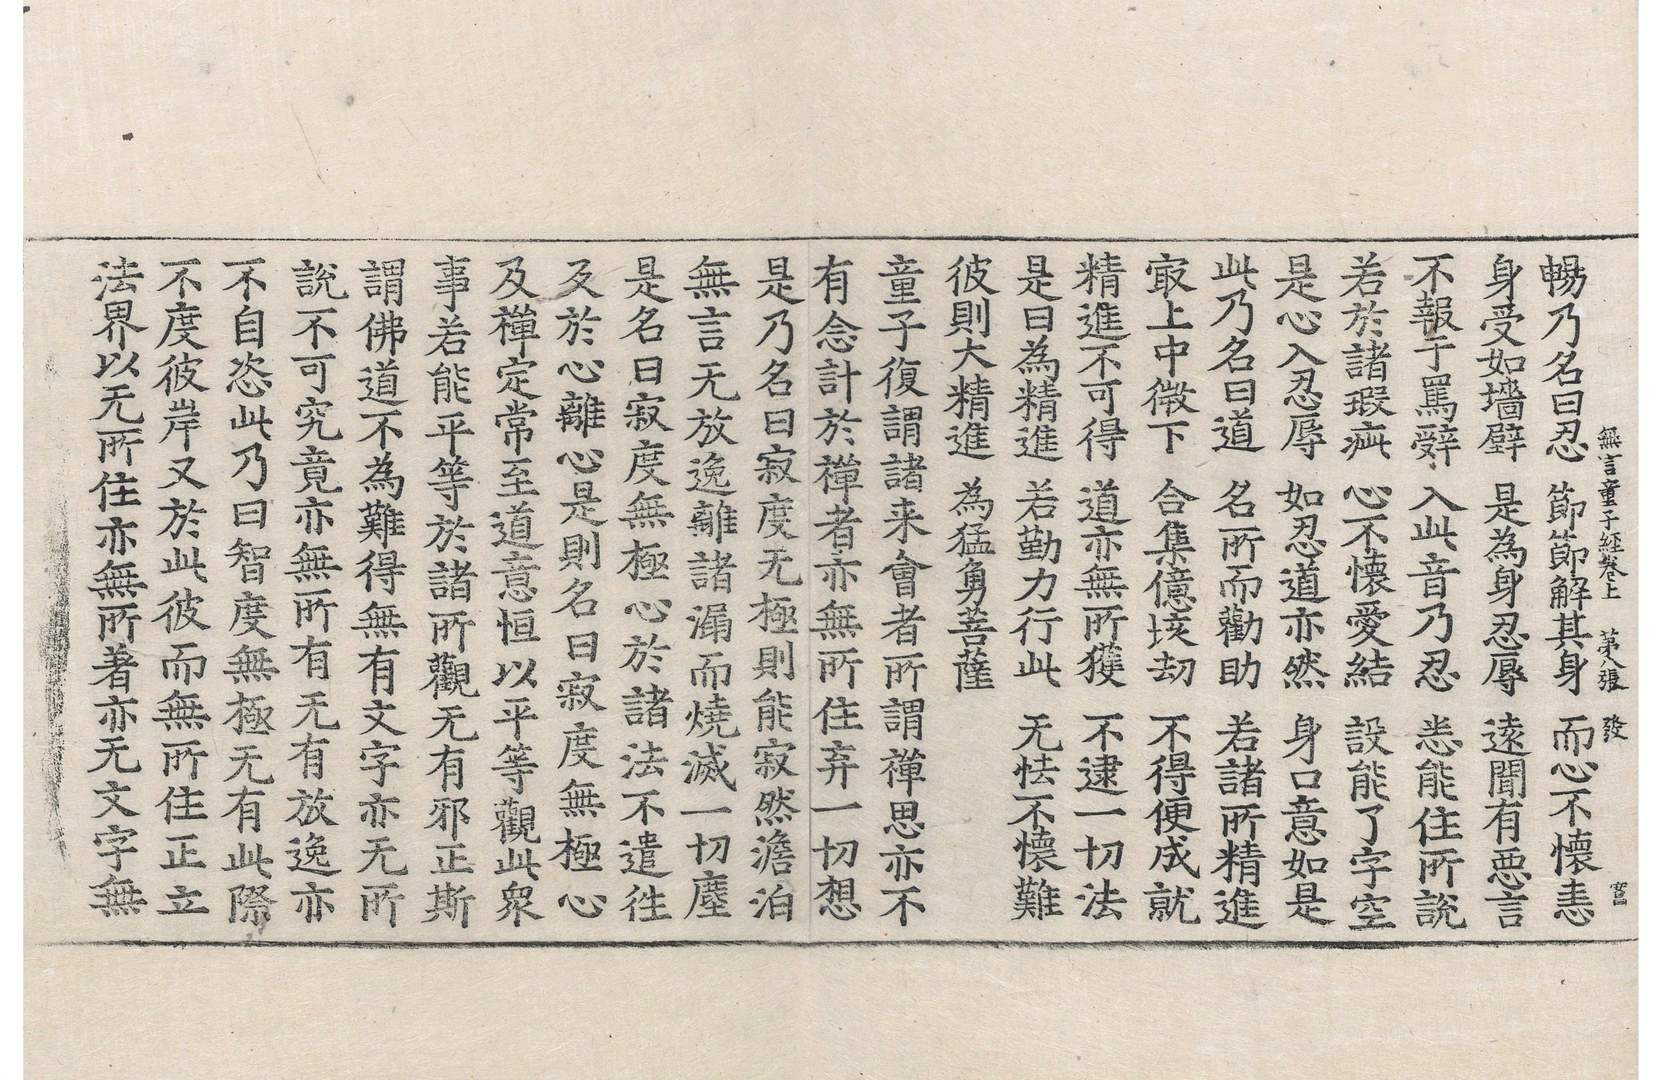 無言童子經卷上　第八張　發
暢乃名曰忍　節節解其身　而心不懷恚
身受如墻壁　是為身忍辱　遠聞有惡言
不報于罵辝　入此音乃忍　悉能住所說
若於諸瑕疵　心不懷愛結　設能了字空
是心入忍辱　如忍道亦然　身口意如是
此乃名曰道　名所而勸助　若諸所精進
㝡上中微下　合集億垓劫　不得便成就
精進不可得　道亦無所獲　不逮一切法
是曰為精進　若勤力行此　无怯不懷難
彼則大精進　為猛勇菩薩
童子復謂諸来會者所謂禪思亦不
有念計於禪者亦無所住弃一切想
是乃名曰寂度无極則能寂然澹泊
無言无放逸離諸漏而燒滅一切塵
是名曰寂度無極心於諸法不遣徃
及於心離心是則名曰寂度無極心
及禪定常至道意恒以平等觀此衆
事若能平等於諸所觀无有邪正斯
謂佛道不為難得無有文字亦无所
說不可究竟亦無所有无有放逸亦
不自恣此乃曰智度無極无有此際
不度彼岸又於此彼而無所住正立
法界以无所住亦無所著亦无文字無